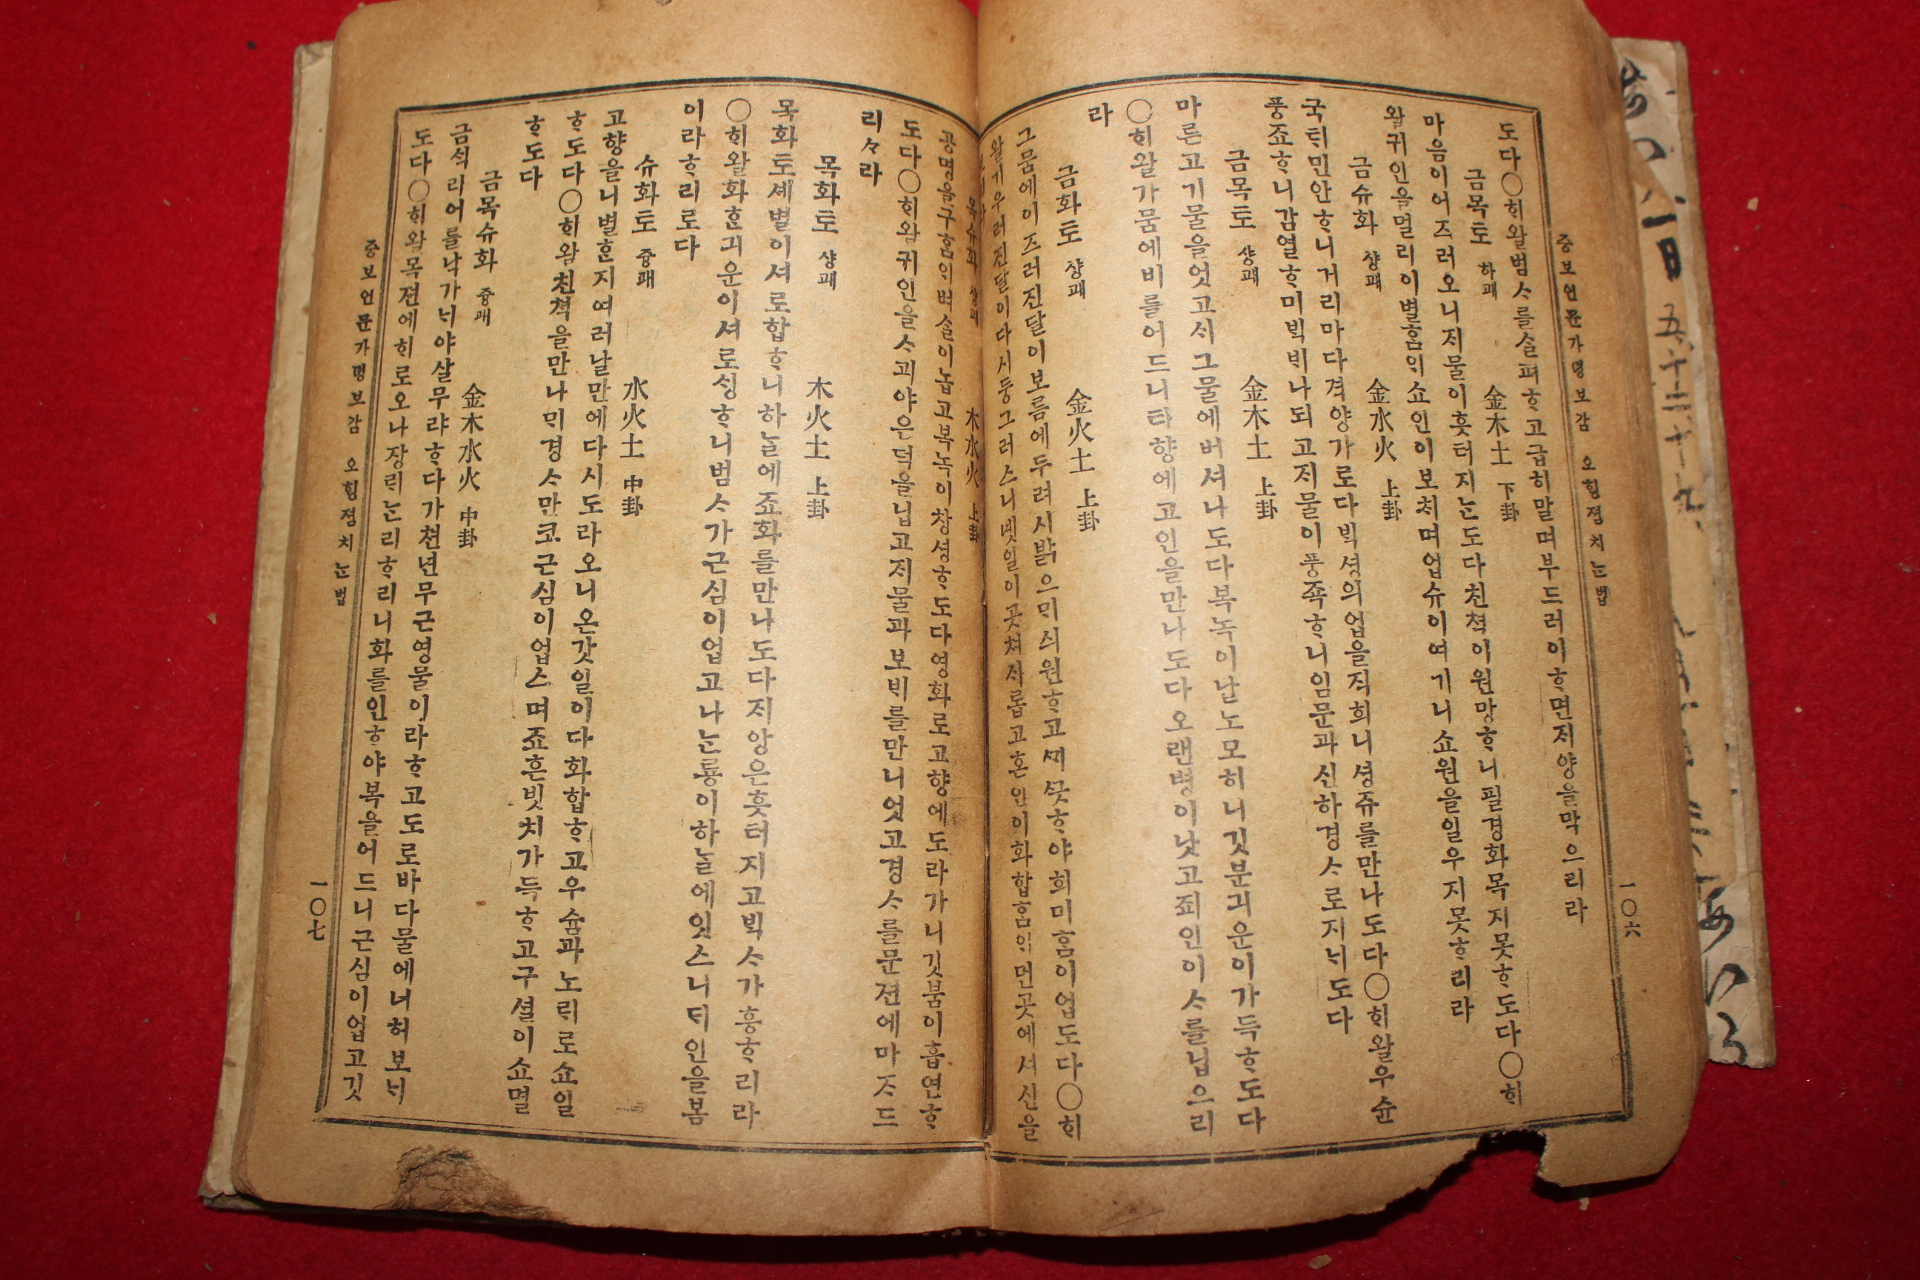 증보언문가뎡보감 오힝졈치ᄂᆞᆫ법
一○六
도다○ᄒᆡ왈범ᄉᆞ를ᄉᆞᆯ펴ᄒᆞ고급히말며부드러이ᄒᆞ면ᄌᆡ양을막으리라
금목토 하괘 金木土 下卦
마음이어즈러오니ᄌᆡ물이흣터지ᄂᆞᆫ도다친쳑이원망ᄒᆞ니필경화목지못ᄒᆞ도다○ᄒᆡ
왈귀인을멀리이별ᄒᆞᆷᄋᆡ쇼인이보ᄎᆡ며업슈이여기니쇼원을일우지못ᄒᆞ리라
금슈화 샹괘 金水火 上卦
국ᄐᆡ민안ᄒᆞ니거리마다격양가로다ᄇᆡᆨ셩의업을직희니셩쥬를만나도다○ᄒᆡ왈우슌
풍죠ᄒᆞ니감열ᄒᆞᄆᆡ빗ᄂᆡ나되고ᄌᆡ물이풍죡ᄒᆞ니임문과신하경ᄉᆞ로지ᄂᆡ도다
금목토 샹괘 金木土 上卦
마른고기물을엇고ᄉᆡ그물에버셔나도다복녹이날노모히니깃분긔운이가득ᄒᆞ도다
○ᄒᆡ왈가뭄에비를어드니타향에고인을만나도다오랜병이낫고죄인이ᄉᆞ를닙으리
라
금화토 샹괘 金火土 上卦
그뭄에이즈러진달이보름에두려시밝으ᄆᆡ쇠원ᄒᆞ고셰ᄉᆞᆺᄒᆞ야희미ᄒᆞᆷ이업도다○ᄒᆡ
왈기우러진달이다시둥그러스니녯일이곳쳐ᄉᆡ롭고혼인이화합ᄒᆞᆷᄋᆡ먼곳에셔신을
목슈화 샹괘 木水火 上卦
광명을구ᄒᆞᆷᄋᆡ벼슬이놉고복녹이창셩ᄒᆞ도다영화로고향에도라가니깃붐이흡연ᄒᆞ
도다○ᄒᆡ왈귀인을ᄉᆞ괴야은덕을닙고ᄌᆡ물과보ᄇᆡ를만니엇고경ᄉᆞ를문젼에마ᄌᆞ드
리々라
목화토 샹괘 木火土 上卦
목화토셰별이셔로합ᄒᆞ니하ᄂᆞᆯ에죠화를만나도다ᄌᆡ앙은흣터지고ᄇᆡᆨᄉᆞ가흥ᄒᆞ리라
○ᄒᆡ왈화ᄒᆞᆫ긔운이셔로ᄉᆡᆼᄒᆞ니범ᄉᆞ가근심이업고나ᄂᆞᆫ룡이하ᄂᆞᆯ에잇스니ᄃᆡ인을봄
이라ᄒᆞ리로다
슈화토 즁괘 水火土 中卦
고향을니별ᄒᆞᆫ지여러날만에다시도라오니온갓일이다화합ᄒᆞ고우슘과노ᄅᆡ로쇼일
ᄒᆞ도다○ᄒᆡ왈친쳑을만나ᄆᆡ경ᄉᆞ만코근심이업스며죠흔빗치가득ᄒᆞ고구셜이쇼멸
ᄒᆞ도다
금목슈화 즁괘 金木水火 中卦
금셕리어를낙가ᄂᆡ야살무랴ᄒᆞ다가쳔년무근영물이라ᄒᆞ고도로바다물에너허보ᄂᆡ
도다○ᄒᆡ왈목젼에ᄒᆡ로오나장ᄅᆡᄂᆞᆫ리ᄒᆞ리니화를인ᄒᆞ야복을어드니근심이업고깃
증보언문가뎡보감 오힝졈치ᄂᆞᆫ법
一○七